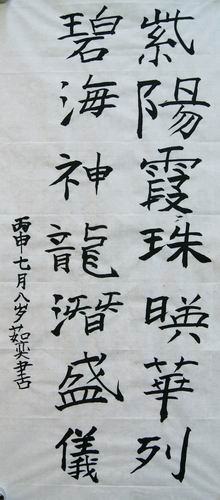 紫陽霞珠暎華列
碧海神龍潛盛儀
丙申七月八岁茹奕书